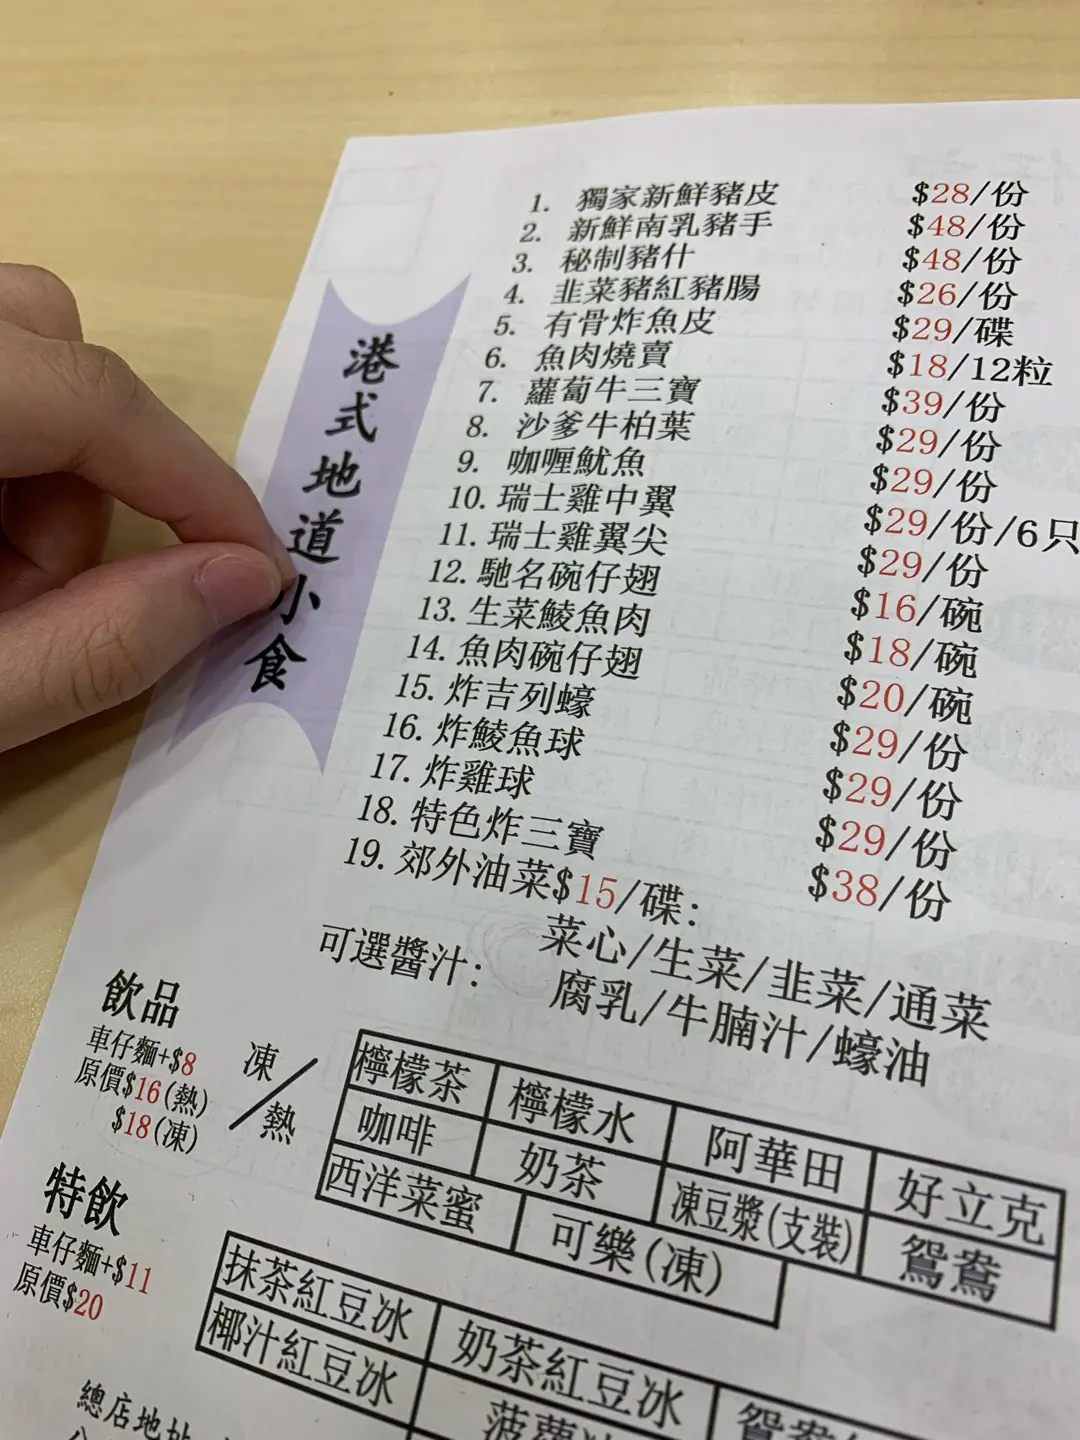 港式地道小食
1. 獨家新鮮豬皮 $28/份
2. 新鮮南乳豬手 $48/份
3. 秘制豬什 $48/份
4. 韭菜豬紅豬腸 $26/份
5. 有骨炸魚皮 $29/碟
6. 魚肉燒賣 $18/12粒
7. 蘿蔔牛三寶 $39/份
8. 沙爹牛柏葉 $29/份
9. 咖喱魷魚 $29/份
10. 瑞士雞中翼 $29/份/6只
11. 瑞士雞翼尖 $29/份
12. 馳名碗仔翅 $16/碗
13. 生菜鯪魚肉 $18/碗
14. 魚肉碗仔翅 $20/碗
15. 炸吉列蠔 $29/份
16. 炸鯪魚球 $29/份
17. 炸雞球 $29/份
18. 特色炸三寶 $38/份
19. 郊外油菜$15/碟:
菜心/生菜/韭菜/通菜
可選醬汁: 腐乳/牛腩汁/蠔油
飲品
車仔麵+$8
原價$16(熱)
$18(凍)
凍/熱
檸檬茶 檸檬水 阿華田 好立克
咖啡 奶茶 凍豆漿(支裝) 鴛鴦
西洋菜蜜 可樂(凍)
特飲
車仔麵+$11
原價$20
抹茶紅豆冰 奶茶紅豆冰
椰汁紅豆冰
總店地址